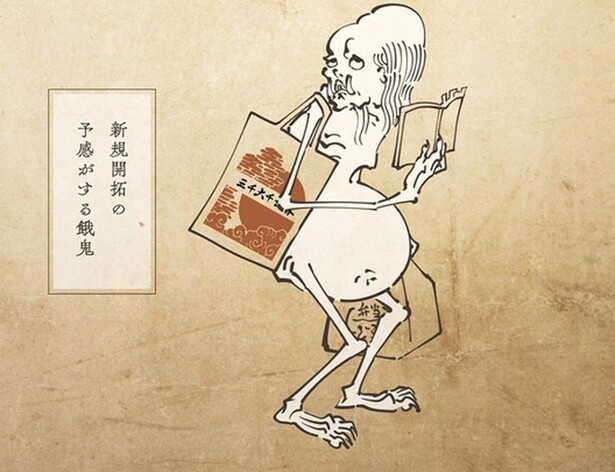 新規開拓の
予感がする餓鬼
三千六千
弁当